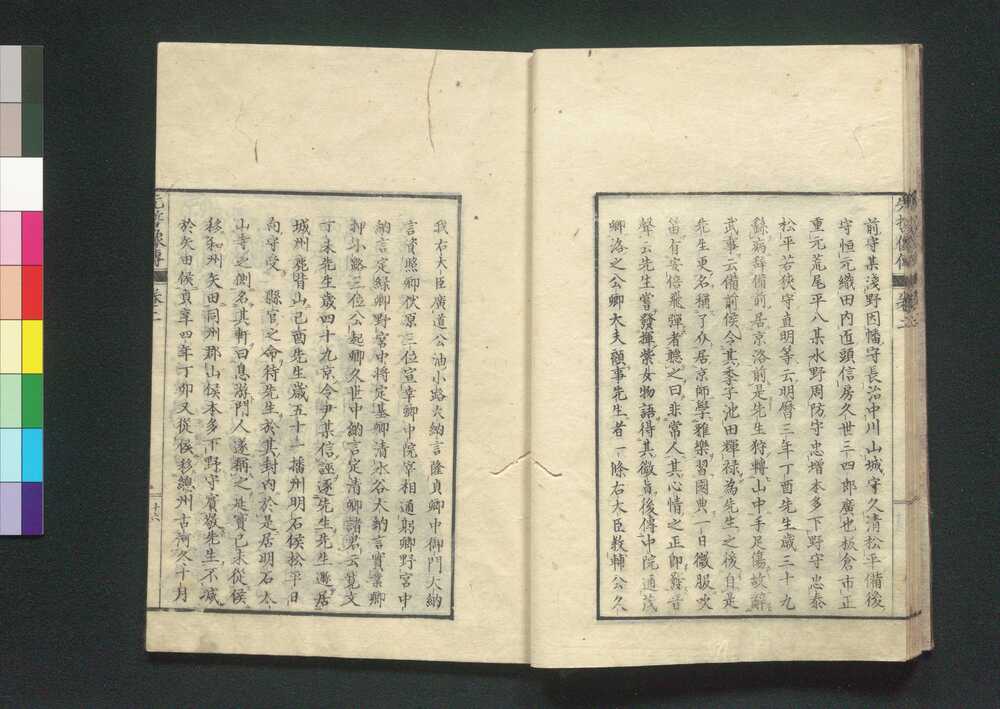 前守某淺野因幡守長治中川山城守久清松平備後
守恒元織田内匠頭信房久世三四郎廣也板倉市正
重元荒尾平八某水野周防守忠增本多下野守忠泰
松平若狹守直明等云明曆三年丁酉先生歲三十九
餘病辭備前居京洛前是先生狩轉山中手足傷故辭
武事云備前候令其季子池田輝祿為先生之後自是
先生更名稱了介居京師學雅樂習國典一日微服吹
笛有安倍飛彈者聽之曰非常人其心情之正卽發音
聲云先生嘗發揮紫女物語得其微旨後傳中院通茂
卿洛之公卿大夫額事先生者一條右大臣教輔公久
我右大臣廣道公油小路大納言隆貞卿中御門大納
言資熙卿伏原三位宣幸卿中院宰相通躬卿野宮中
納言定緣卿野宮中將定基卿清水谷大納言實業卿
押小路三位公起卿久世中納言定清卿諸君云寛文
丁未先生歲四十九京令尹某信誣逐先生先生遯居
城州鹿背山己酉先生歲五十一播州明石侯松平日
向守受 縣官之命待先生於其封内於是居明石太
山寺之側名其軒曰息游門人遂稱之延寶己未從侯
移和州矢田同州郡山侯本多下野守賓敬先生不減
於矢田侯貞享四年丁卯又從侯移總州古河久十月
先哲像傳 卷二
十六